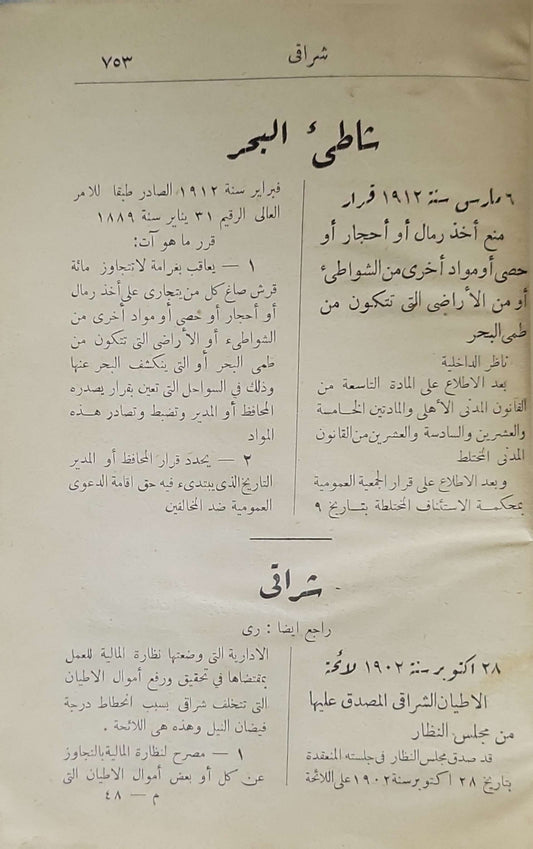 شراقى
٧٥٣
شاطئ البحر
٦ مارس سنة ١٩١٢ قرار
منع أخذ رمال أو أحجار أو
حصى أو مواد أخرى من الشواطىء
أو من الأراضى التى تتكون من
طمى البحر
ناظر الداخلية
بعد الاطلاع على المادة التاسعة من
القانون المدنى الأهلى والمادتين الخامسة
والعشرين والسادسة والعشرين من القانون
المدنى المختلط
وبعد الاطلاع على قرار الجمعية العمومية
بمحكمة الاستئناف المختلطة بتاريخ ٩
فبراير سنة ١٩١٢ الصادر طبقا للامر
العالى الرقيم ٣١ يناير سنة ١٨٨٩
قرر ما هو آت:
١ — يعاقب بغرامة لا تتجاوز مائة
قرش صاغ كل من يتجارى على أخذ رمال
أو أحجار أو حصى أو مواد أخرى من
الشواطىء أو الأراضى التى تتكون من
طمى البحر أو التى ينكشف البحر عنها
وذلك فى السواحل التى تعين بقرار يصدره
المحافظ أو المدير وتضبط وتصادر هذه
المواد
٢ — يحدد قرار المحافظ أو المدير
التاريخ الذى يبتدىء فيه حق اقامة الدعوى
العمومية ضد المخالفين
شراقى
راجع ايضا : رى
٢٨ اكتوبر سنة ١٩٠٢ لائحة
الاطيان الشراقى المصدق عليها
من مجلس النظار
قد صدق مجلس النظار فى جلسته المنعقدة
بتاريخ ٢٨ اكتوبر سنة ١٩٠٢ على اللائحة
الادارية التى وضعتها نظارة المالية للعمل
بمقتضاها فى تحقيق ورفع أموال الاطيان
التى تتخلف شراقى بسبب انحطاط درجة
فيضان النيل وهذه هى اللائحة .
١ — مصرح لنظارة المالية بالتجاوز
عن كل أو بعض أموال الاطيان التى
م — ٤٨